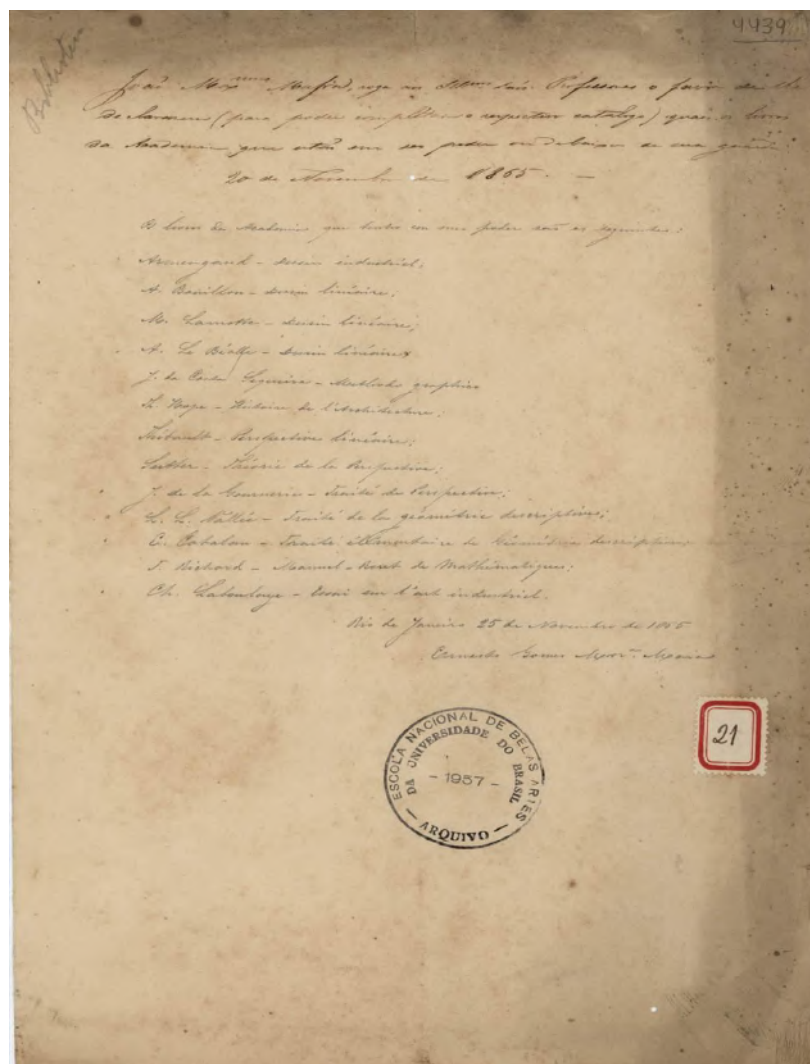 4439
Biblioteca
João Max.mno Mafra, roga aos Illmos Snrs. Professores o favor de lhe
declararem (para poder completar o respectivo catalogo) quaes os livros
da Academia que estão em seu poder ou debaixo de sua guarda.
20 de Novembro de 1865. —
Os livros da Academia que tenho em meu poder são os seguintes:
Armengaud - Dessin industriel;
A. Bouillon - Dessin linéaire;
M. Lamotte - Dessin linéaire;
A. Le Béalle - Dessin linéaire;
J. da Costa Sequeira - Methodo graphico
H. Hope - Histoire de l'Architecture;
Thibault - Perspective linéaire;
- Théorie de la Perspective;
J. de la Gournerie - Traité de Perspective;
L. L. Vallée - Traité de la géométrie descriptive;
E. Catalan - Traité élémentaire de Géométrie descriptive
J. Richard - Manuel-Roret de Mathématiques;
Ch. Laboulaye - Essai sur l'art industriel.
Rio de Janeiro 25 de Novembro de 1865
Ernesto Gomes Mor.a Maia
21
ESCOLA NACIONAL DE BELAS ARTES
DA UNIVERSIDADE DO BRASIL
- 1957 -
- ARQUIVO -